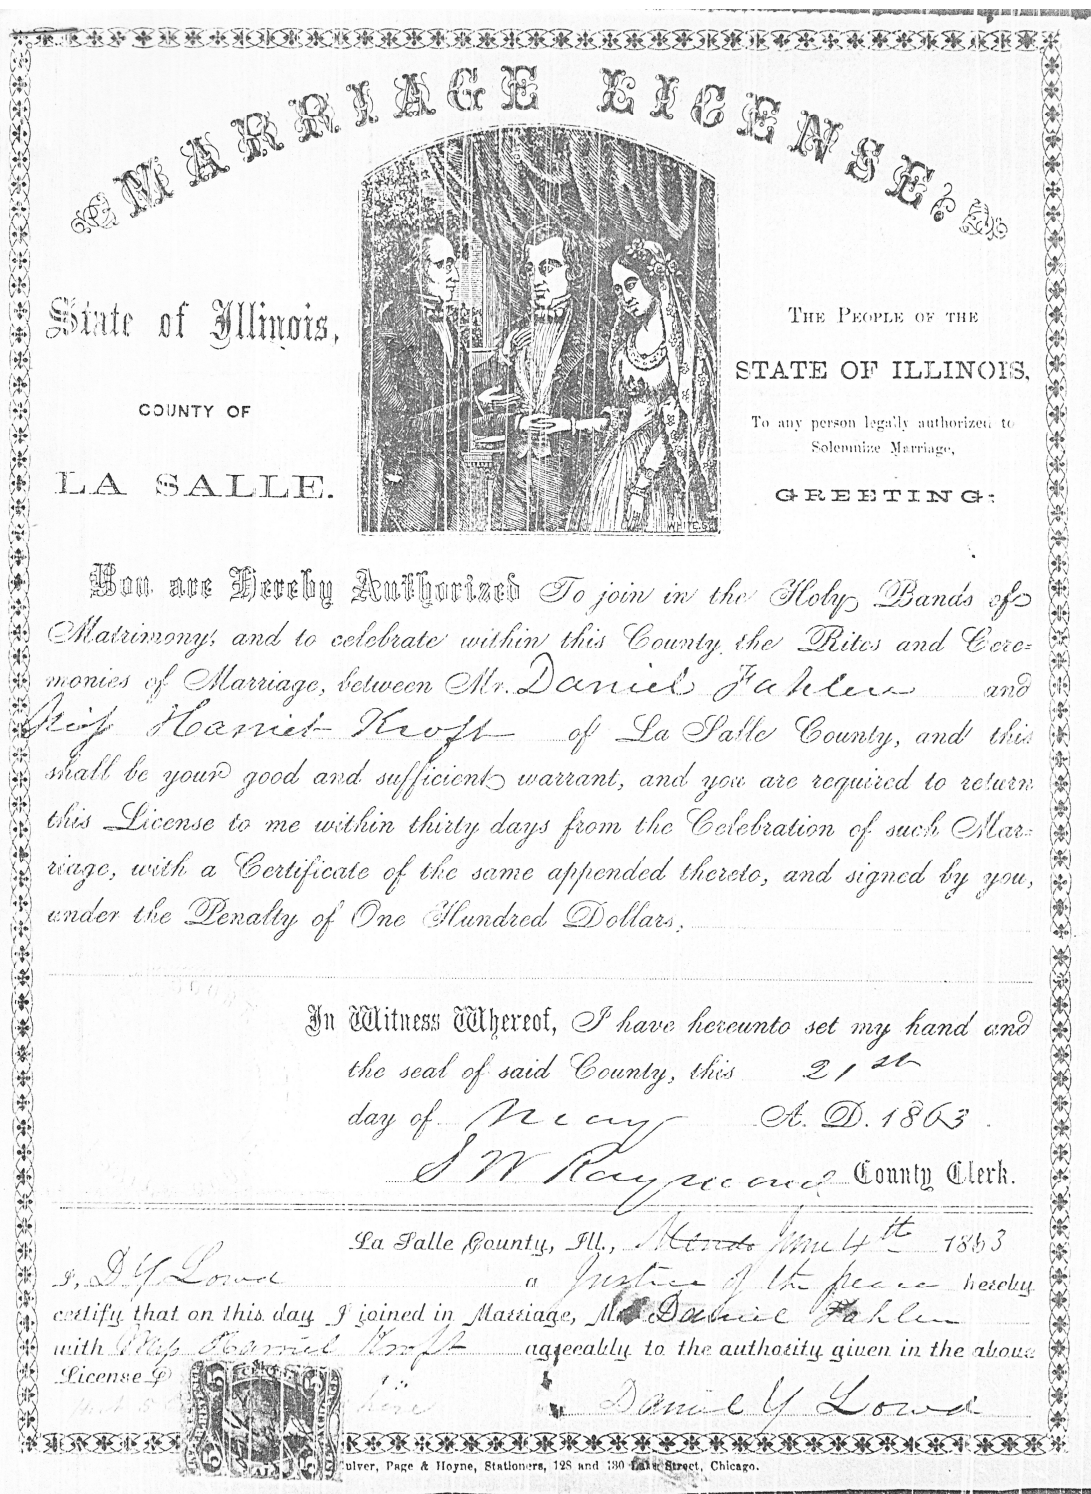 MARRIAGE LICENSE
State of Illinois,
COUNTY OF
LA SALLE.
THE PEOPLE OF THE
STATE OF ILLINOIS,
To any person legally authorized to
Solemnize Marriage,
GREETING:
WHITE.SC
You are Hereby Authorized To join in the Holy Bands of
Matrimony, and to celebrate within this County, the Rites and Cere-
monies of Marriage, between Mr. Daniel Fahlen and
Miss Harriet Kroft of La Salle County, and this
shall be your good and sufficient warrant, and you are required to return
this License to me within thirty days from the Celebration of such Mar-
riage, with a Certificate of the same appended thereto, and signed by you,
under the Penalty of One Hundred Dollars.
In Witness Whereof, I have hereunto set my hand and
the seal of said County, this 21st
day of May A. D. 1863.
S W Raymond County Clerk.
La Salle County, Ill., June 4th 1863
I, D Y Lowd a Justice of the peace hereby
certify that on this day I joined in Marriage, Mr Daniel Fahlen
with Miss Harriet Kroft agreeably to the authority given in the above
License
Daniel Y Lowd
5 5
5 5
ulver, Page & Hoyne, Stationers, 128 and 130 Lake Street, Chicago.